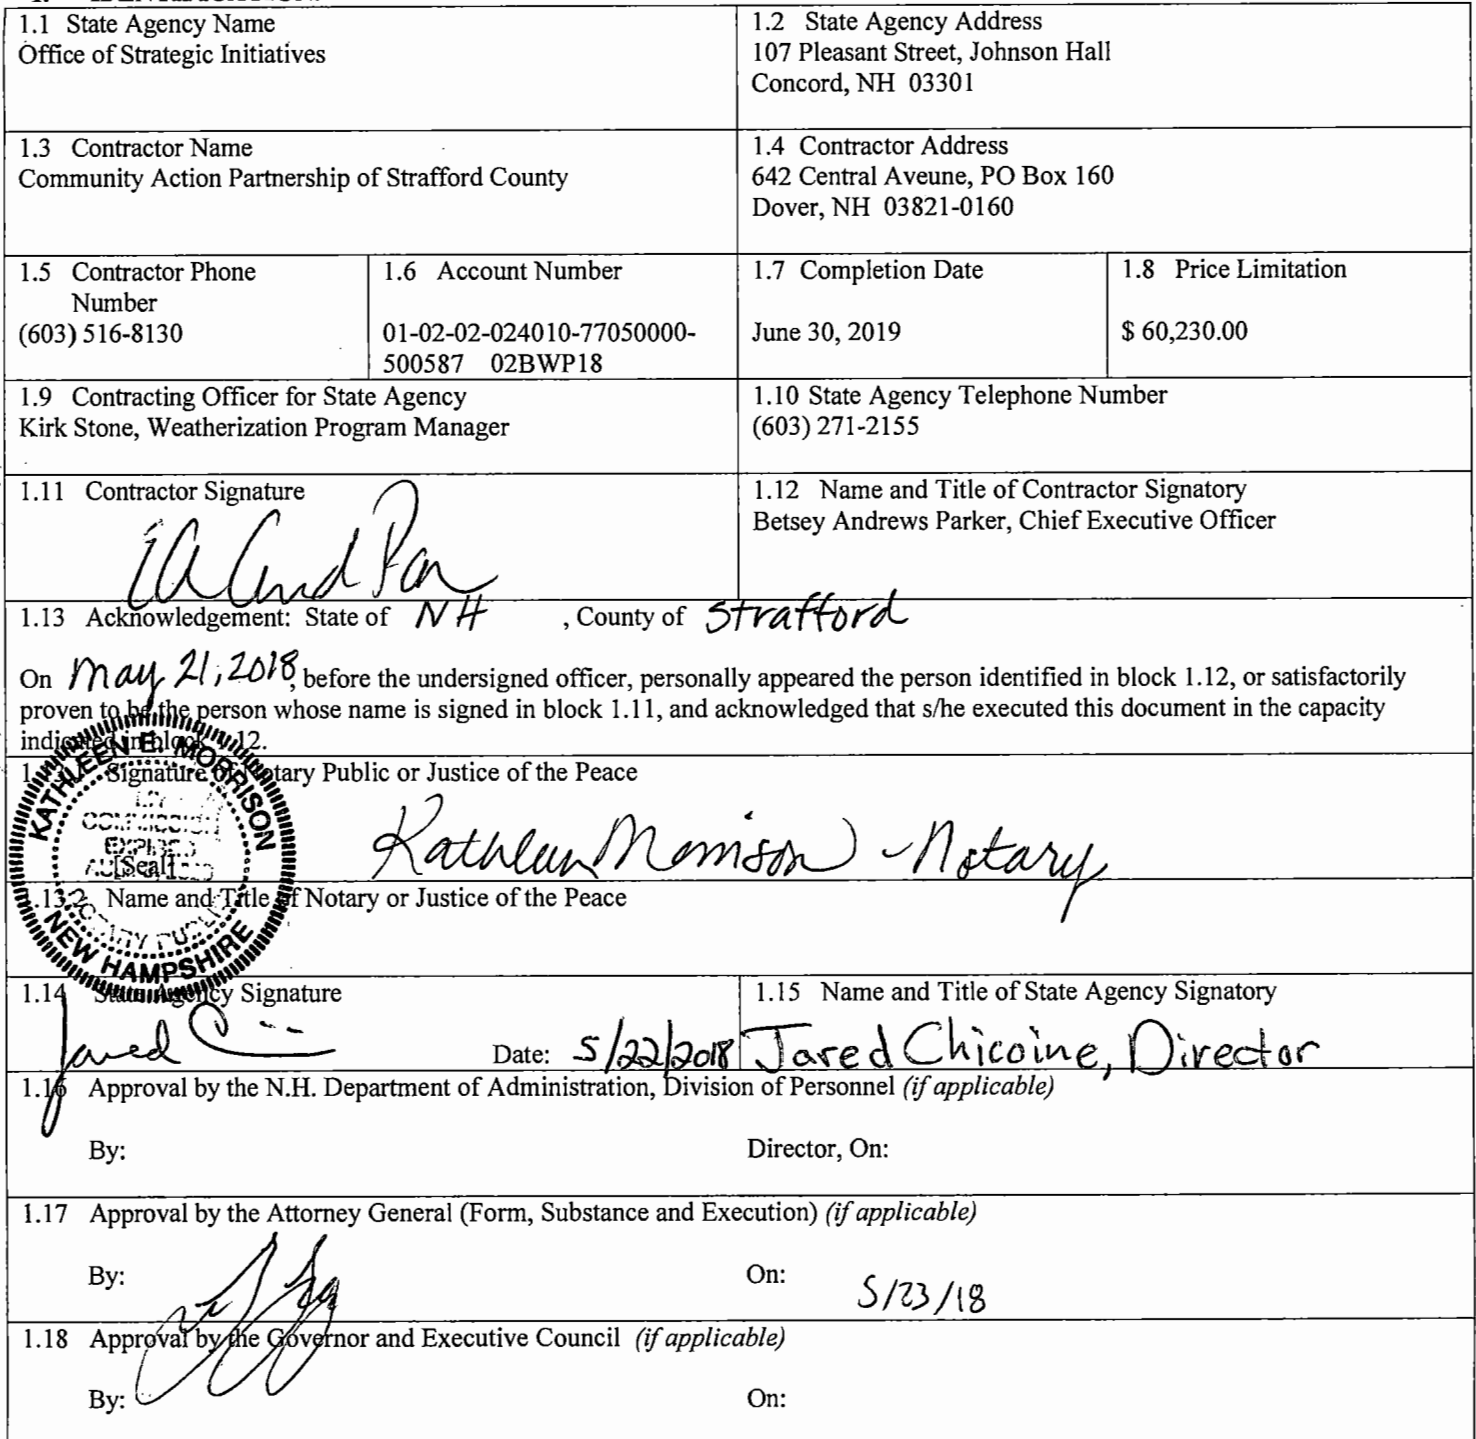 1.1 State Agency Name
Office of Strategic Initiatives
1.2 State Agency Address
107 Pleasant Street, Johnson Hall
Concord, NH 03301
1.3 Contractor Name
Community Action Partnership of Strafford County
1.4 Contractor Address
642 Central Aveune, PO Box 160
Dover, NH 03821-0160
1.5 Contractor Phone
Number
(603) 516-8130
1.6 Account Number
01-02-02-024010-77050000-
500587 02BWP18
1.7 Completion Date
June 30, 2019
1.8 Price Limitation
$ 60,230.00
1.9 Contracting Officer for State Agency
Kirk Stone, Weatherization Program Manager
1.10 State Agency Telephone Number
(603) 271-2155
1.11 Contractor Signature
1.12 Name and Title of Contractor Signatory
Betsey Andrews Parker, Chief Executive Officer
1.13 Acknowledgement: State of NH , County of Strafford
On May 21, 2018, before the undersigned officer, personally appeared the person identified in block 1.12, or satisfactorily
proven to be the person whose name is signed in block 1.11, and acknowledged that s/he executed this document in the capacity
indicated in block 1.12.
Signature of Notary Public or Justice of the Peace
KATHLEEN E. MORRISON
COMMISSION
EXPIRES
[Seal]
NEW HAMPSHIRE
Kathleen Morrison - Notary
1.13.2 Name and Title of Notary or Justice of the Peace
1.14 State Agency Signature
Jared
Date: 5/22/2018
1.15 Name and Title of State Agency Signatory
Jared Chicoine, Director
1.16 Approval by the N.H. Department of Administration, Division of Personnel (if applicable)
By:
Director, On:
1.17 Approval by the Attorney General (Form, Substance and Execution) (if applicable)
By:
On: 5/23/18
1.18 Approval by the Governor and Executive Council (if applicable)
By:
On: